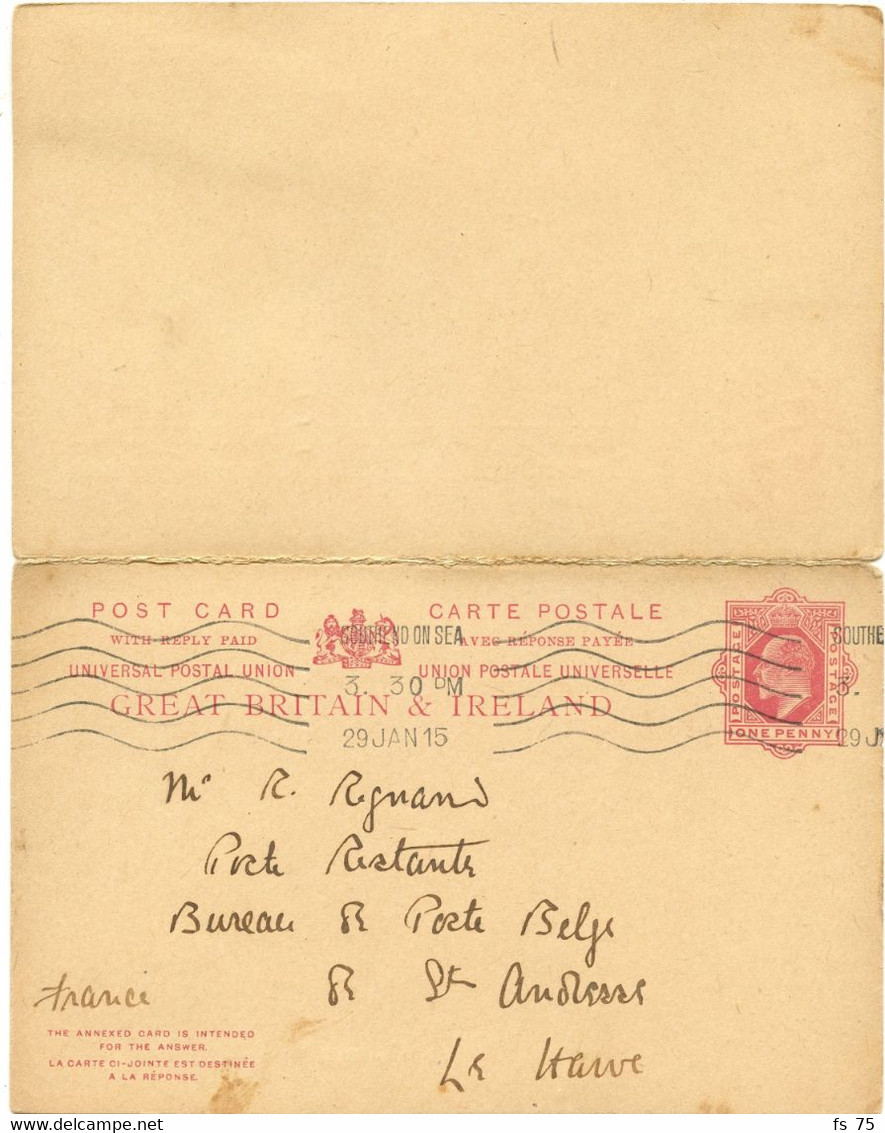 POST CARD
WITH REPLY PAID
UNIVERSAL POSTAL UNION
CARTE POSTALE
AVEC RÉPONSE PAYÉE
UNION POSTALE UNIVERSELLE
GREAT BRITAIN & IRELAND
SOUTHEND ON SEA
3. 30 PM
29 JAN 15
POSTAGE
POSTAGE
ONE PENNY
SOUTHE
3.
29 J
Mr R.
Poste Restante
Bureau de Poste Belge
de St Andresse
Le Havre
France
THE ANNEXED CARD IS INTENDED
FOR THE ANSWER.
LA CARTE CI-JOINTE EST DESTINÉE
A LA RÉPONSE.
Delcampe.net
fs 75